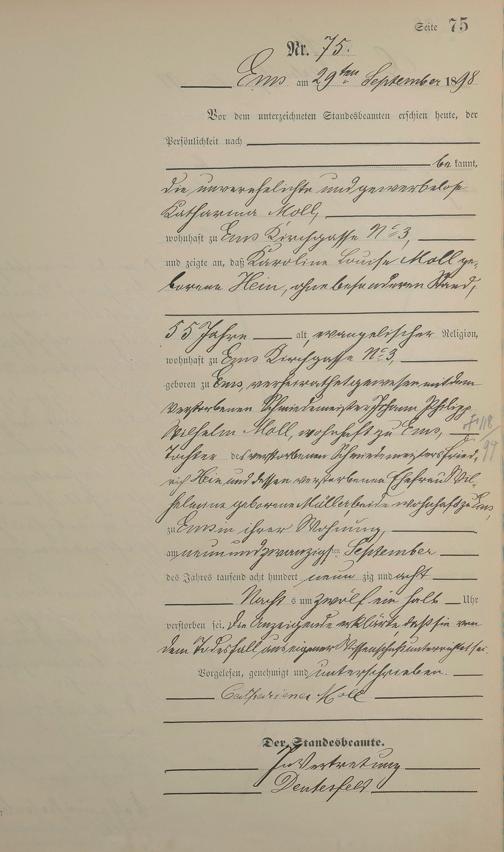 Seite 75
Nr. 75.
Ems am 29ten September 1898
Vor dem unterzeichneten Standesbeamten erschien heute, der
Persönlichkeit nach
be kannt,
die unverehelichte und gewerbelose
Katharina Moll,
wohnhaft zu Ems Kirchgasse No 3,
und zeigte an, daß Karoline Louise Moll ge-
borene Hein, ohne besonderen Stand,
55 Jahre alt, evangelischer Religion,
wohnhaft zu Ems Kirchgasse No 3,
geboren zu Ems, verheirathet gewesen mit dem
verstorbenen Schmiedemeister Johann Philipp
Wilhelm Moll, wohnhaft zu Ems,
Tochter des verstorbenen Schmiedemeisters Fried-
rich Hein und dessen verstorbenen Ehefrau Wil-
helmine geborene Müller, beide wohnhaft zu Ems,
zu Ems in ihrer Wohnung,
am neunundzwanzigsten September
des Jahres tausend acht hundert neun zig und acht
Nacht s um zwölf ein halb Uhr
verstorben sei. Die Anzeigende erklärte daß sie von
dem Todesfall aus eigener Wissenschaft unterrichtet sei.
Vorgelesen, genehmigt und unterschrieben.
Catharina Moll
Der Standesbeamte.
In Vertretung